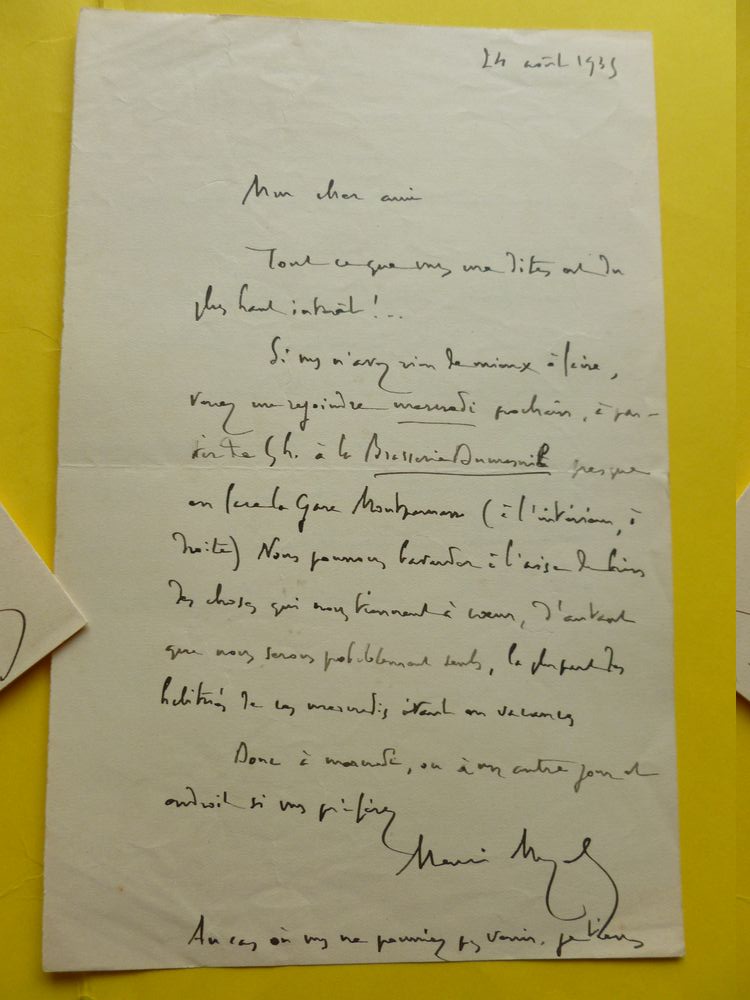 24 août 1935
Mon cher ami
Tout ce que vous me dites est du
plus haut intérêt !...
Si vous n'avez rien de mieux à faire,
venez me rejoindre mercredi prochain, à par-
tir de 5h. à la Brasserie Dumesnil presque
en face la Gare Montparnasse (à l'intérieur, à
droite) Nous pourrons bavarder à l'aise de bien
des choses qui nous tiennent à cœur, d'autant
que nous serons probablement seuls, la plupart des
habitués de ces mercredis étant en vacances
Donc à mercredi, ou à un autre jour et
endroit si vous préférez
Au cas où vous ne pourriez pas venir, je tiens